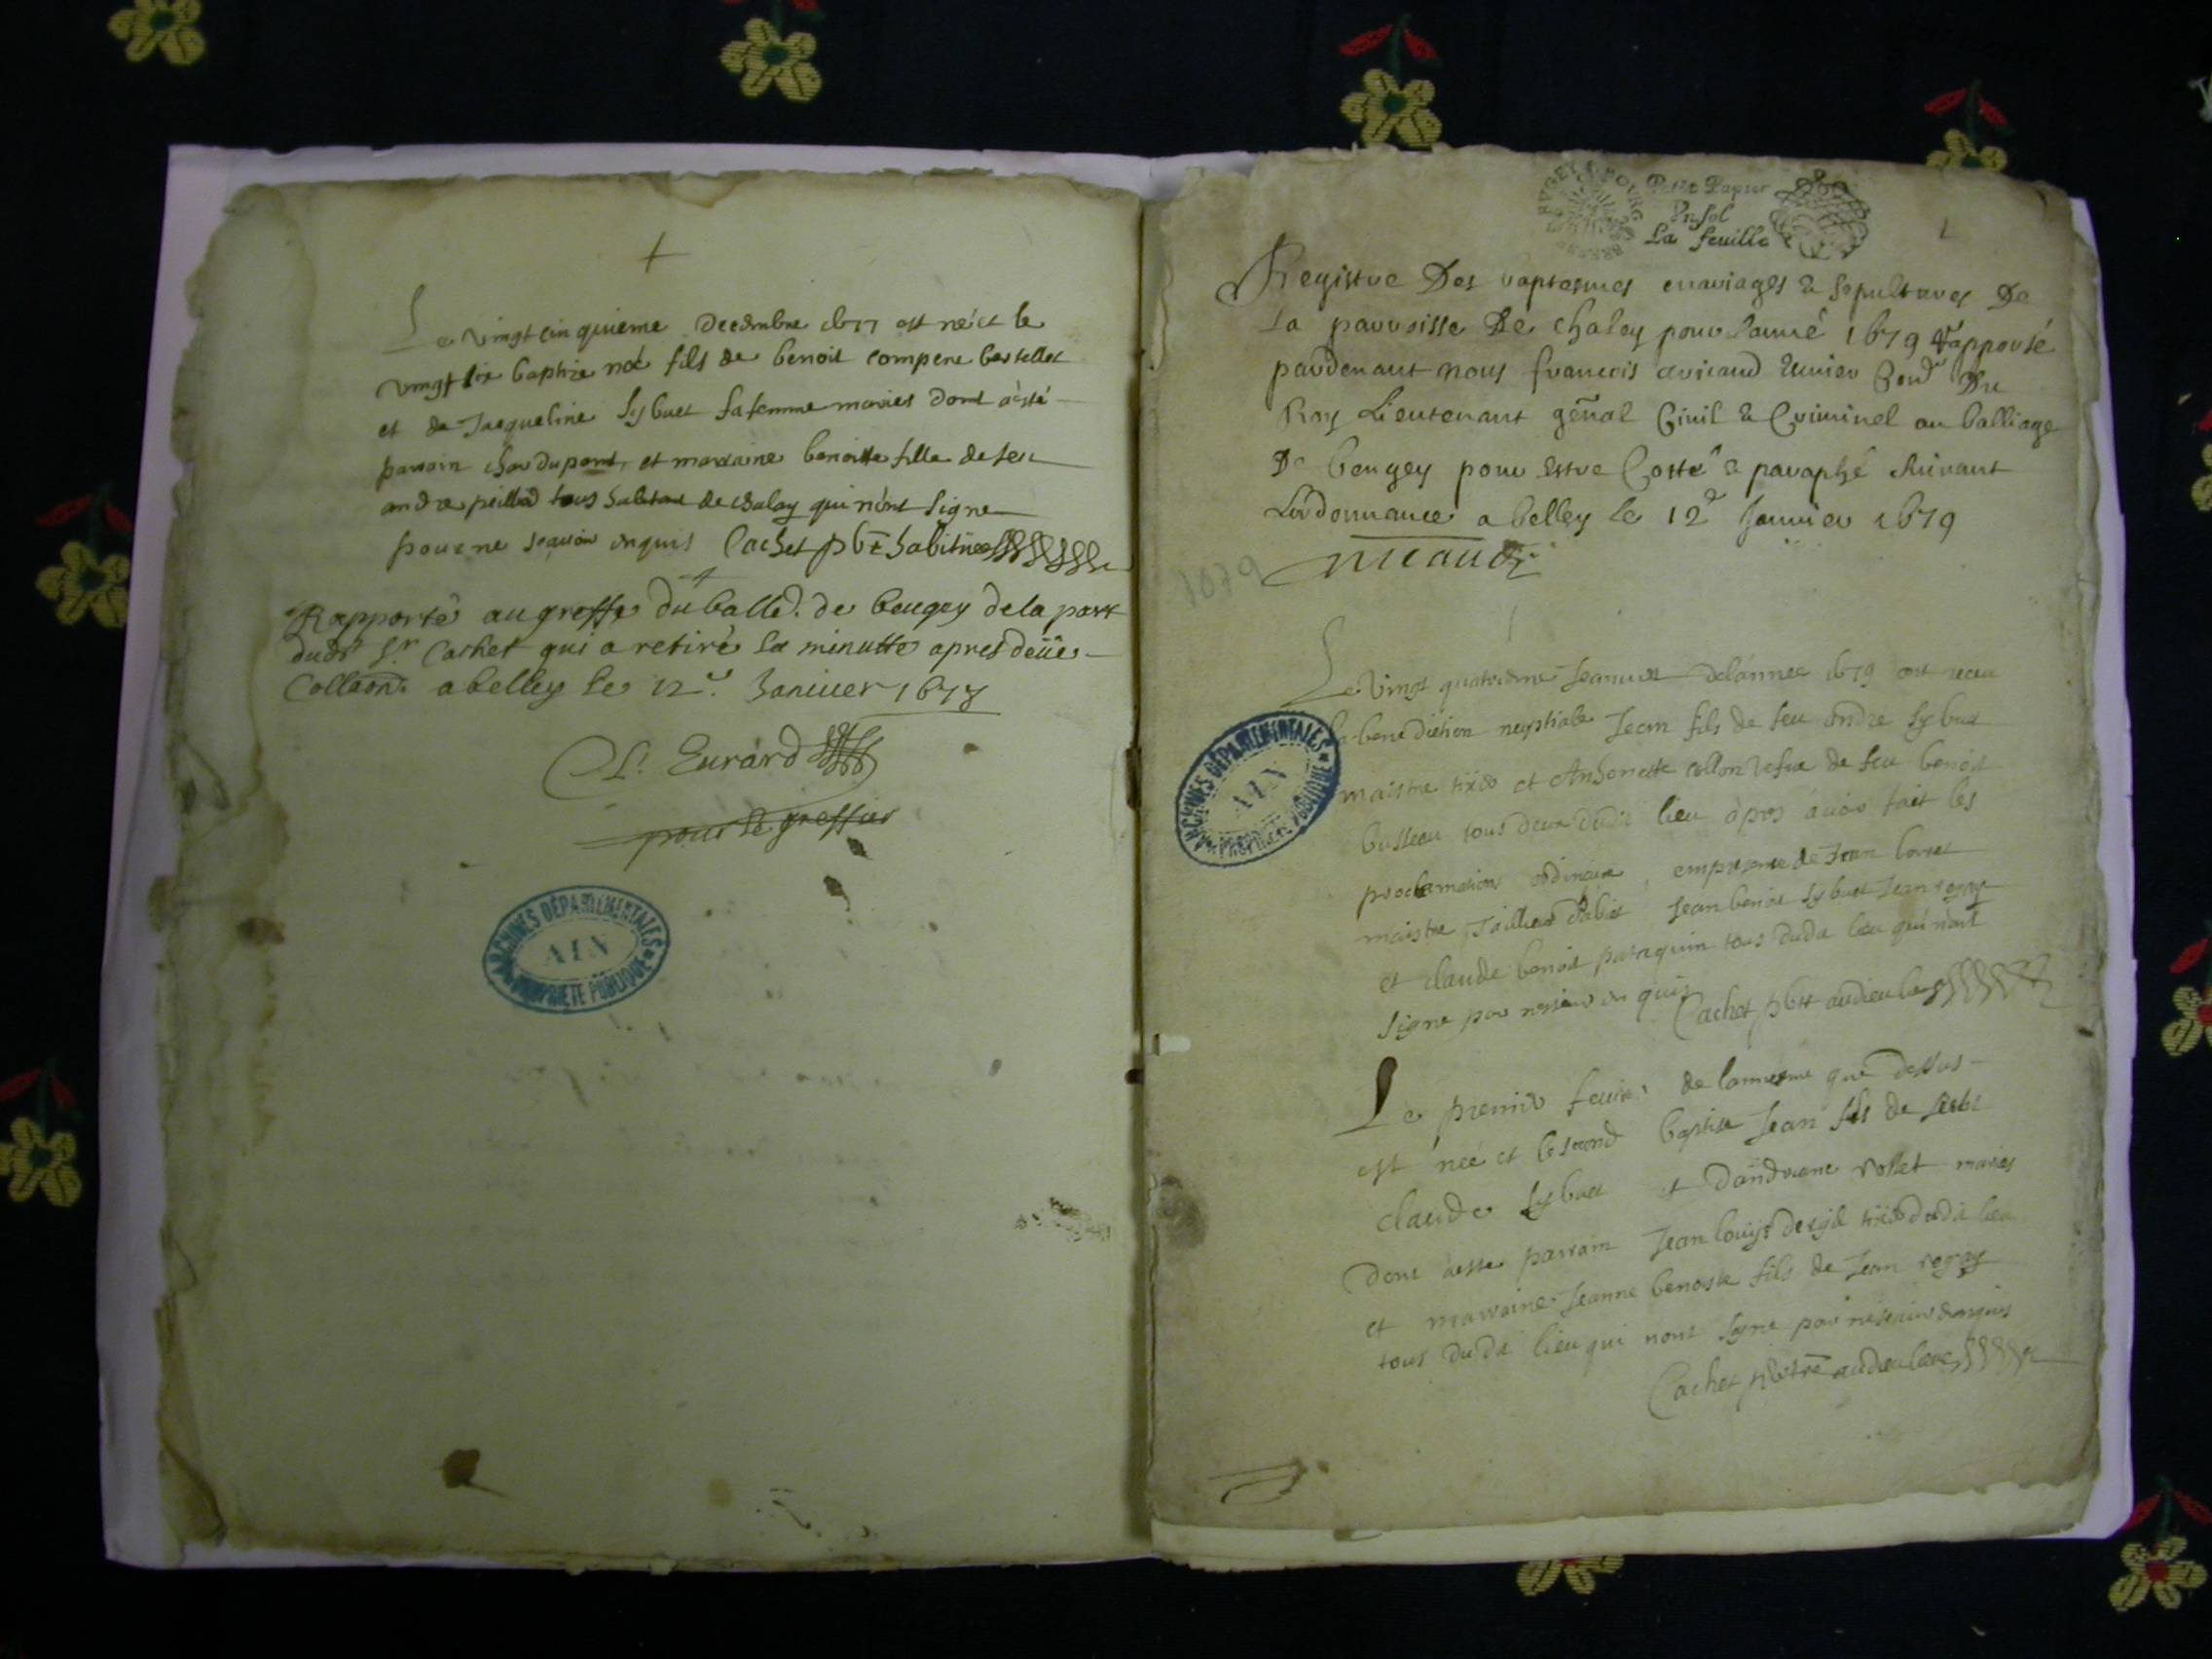 Le vingt cinquieme decembre 1677 est né et le
vingt six baptize noé fils de benoit compere bertellet
et de Jacqueline Sybuet sa femme mariés dont a esté
parrain dupont, et marraine benoitte fille de feu
andre tous habitant de chaley qui n'ont signe
pour ne scavoir enquis Cachet pbr habitue
Rapporté au greffe du balle. de beugey de la part
dudt Sr. Cachet qui a retiré la minutte apres deüe
Collaon. a belley le 12e. Janvier 1678
Eurard
pour le greffier
ARCHIVES DÉPARTEMENTALES
AIN
PROPRIÉTÉ PUBLIQUE
BUGEY BOURG BRESSE
Petit Papier
Un sol
La feuille
1
Registre Des baptesmes mariages & sepultures De
La parroisse De chaley pour l'année 1679 rapporté
pardevant nous francois Conr Du
Roy Lieutenant genal Civil & Criminel au balliage
De beugey pour estre Cotté & paraphé suivant
Lordonnance a belley le 12e Janvier 1679
1679
Le vingt quatrieme Jeanvier de l'annee 1679 ont receu
la benediction nuptiale Jean fils de feu andre Sybuet
maistre tixier et Anthonette collon vefue de feu benoit
busseau tous deux dudit lieu apres avoir fait les
proclamations ordinaire, en presence de Jean
maistre Tailleur d'abit Jean benoit Sybuet Jean
et claude benoit tous dudit lieu qui n'ont
signe pour ne scavoir enquis Cachet pbtr
ARCHIVES DÉPARTEMENTALES
AIN
PROPRIÉTÉ PUBLIQUE
Le premier feuvrier de l'annee que dessus
est née et le second baptise Jean fils de
claude Sybuet et d'andreane rollet mariés
dont a esté parrain Jean louys tixier dudit lieu
et marraine Jeanne benoite fille de Jean
tous dudit lieu qui n'ont signe pour ne scavoir enquis
Cachet pbtre